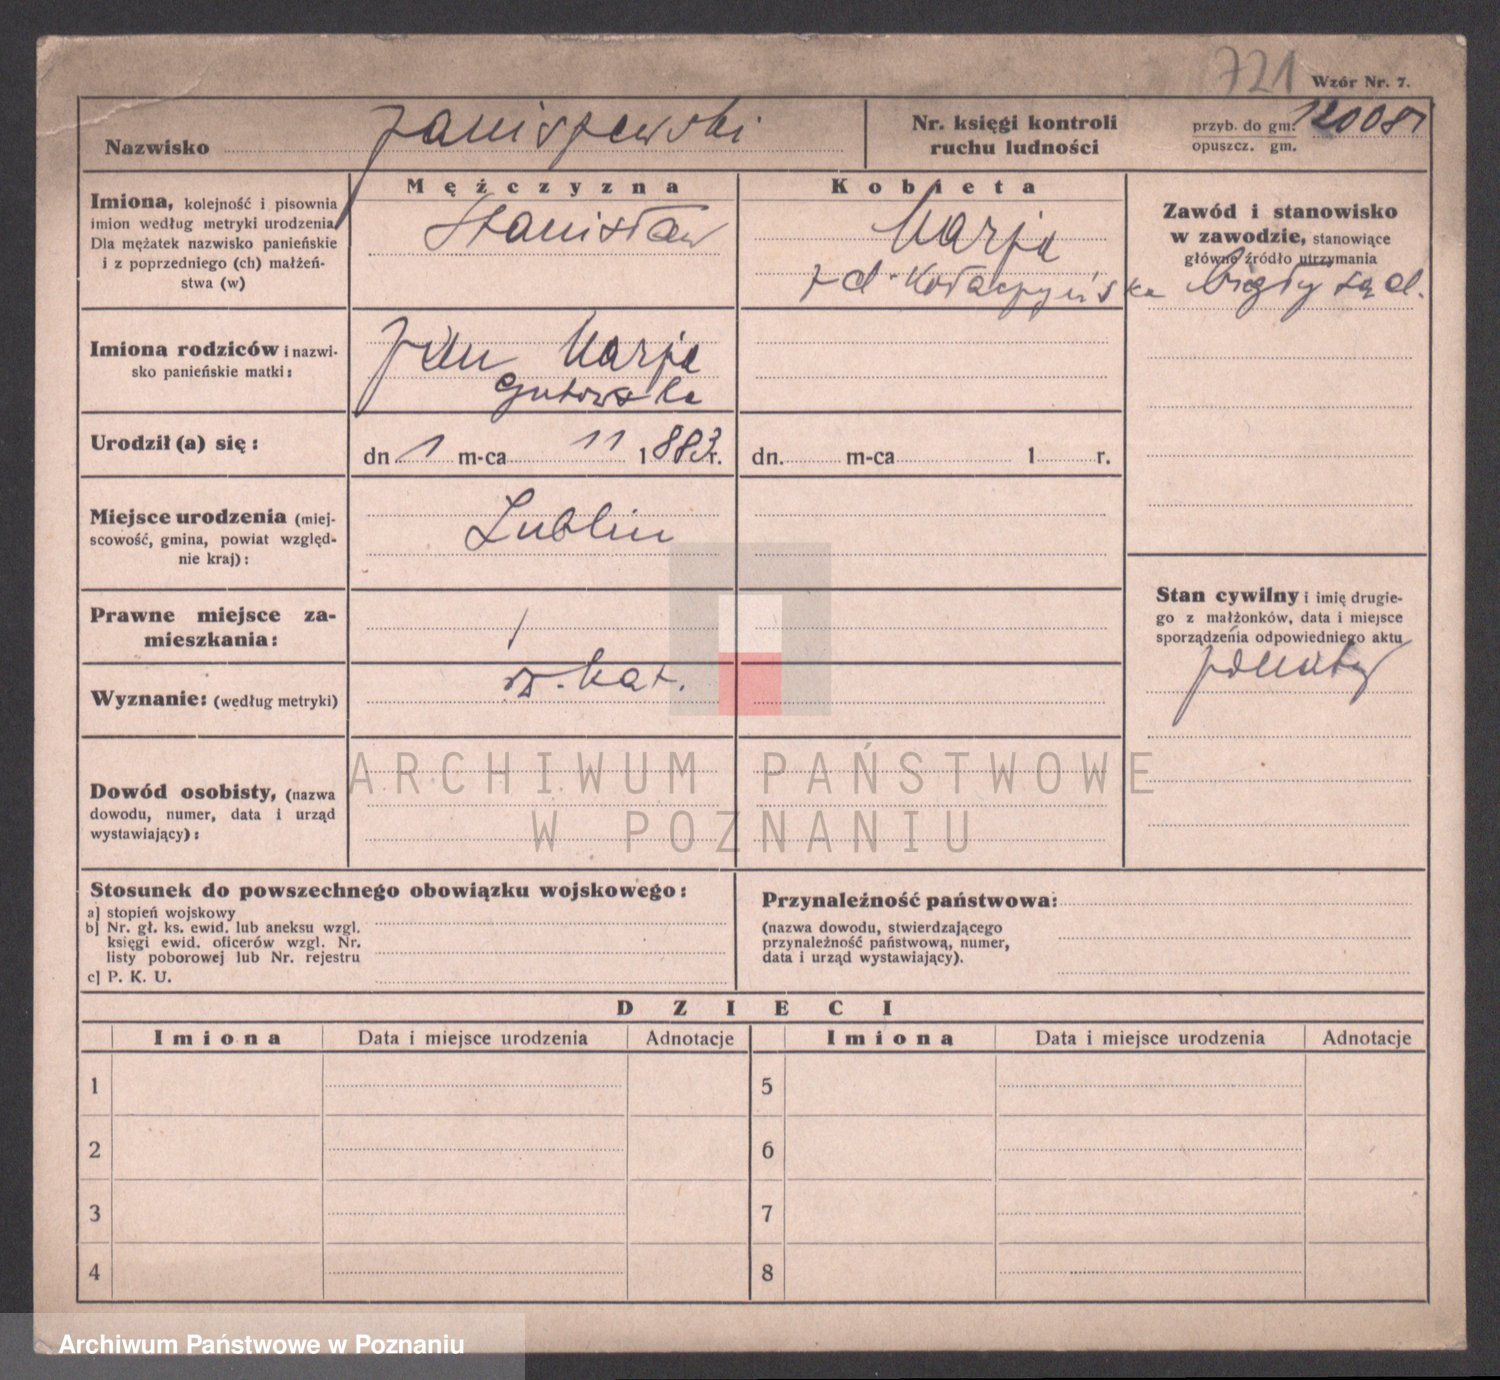 721
Wzór Nr. 7.
Nazwisko Janiszewski
Nr. księgi kontroli
ruchu ludności
przyb. do gm:
opuszcz. gm.
Imiona, kolejność i pisownia
imion według metryki urodzenia.
Dla mężatek nazwisko panieńskie
i z poprzedniego (ch) małżeń-
stwa (w)
Mężczyzna
Stanisław
Kobieta
Marja
Zawód i stanowisko
w zawodzie, stanowiące
główne źródło utrzymania
biegły sąd.
Imiona rodziców i nazwi-
sko panieńskie matki:
Jan Marja
Gutowska
Urodził (a) się:
dn 1 m-ca 11 1883r.
dn. m-ca 1 r.
Miejsce urodzenia (miej-
scowość, gmina, powiat względ-
nie kraj):
Lublin
Prawne miejsce za-
mieszkania:
Wyznanie: (według metryki)
rz. kat.
Stan cywilny i imię drugie-
go z małżonków, data i miejsce
sporządzenia odpowiedniego aktu
żonaty
Dowód osobisty, (nazwa
dowodu, numer, data i urząd
wystawiający):
ARCHIWUM PAŃSTWOWE
W POZNANIU
Stosunek do powszechnego obowiązku wojskowego:
a) stopień wojskowy
b) Nr. gł. ks. ewid. lub aneksu wzgl.
księgi ewid. oficerów wzgl. Nr.
listy poborowej lub Nr. rejestru
c) P. K. U.
Przynależność państwowa:
(nazwa dowodu, stwierdzającego
przynależność państwową, numer,
data i urząd wystawiający).
DZIECI
Imiona Data i miejsce urodzenia Adnotacje Imiona Data i miejsce urodzenia Adnotacje
1 5
2 6
3 7
4 8
Archiwum Państwowe w Poznaniu